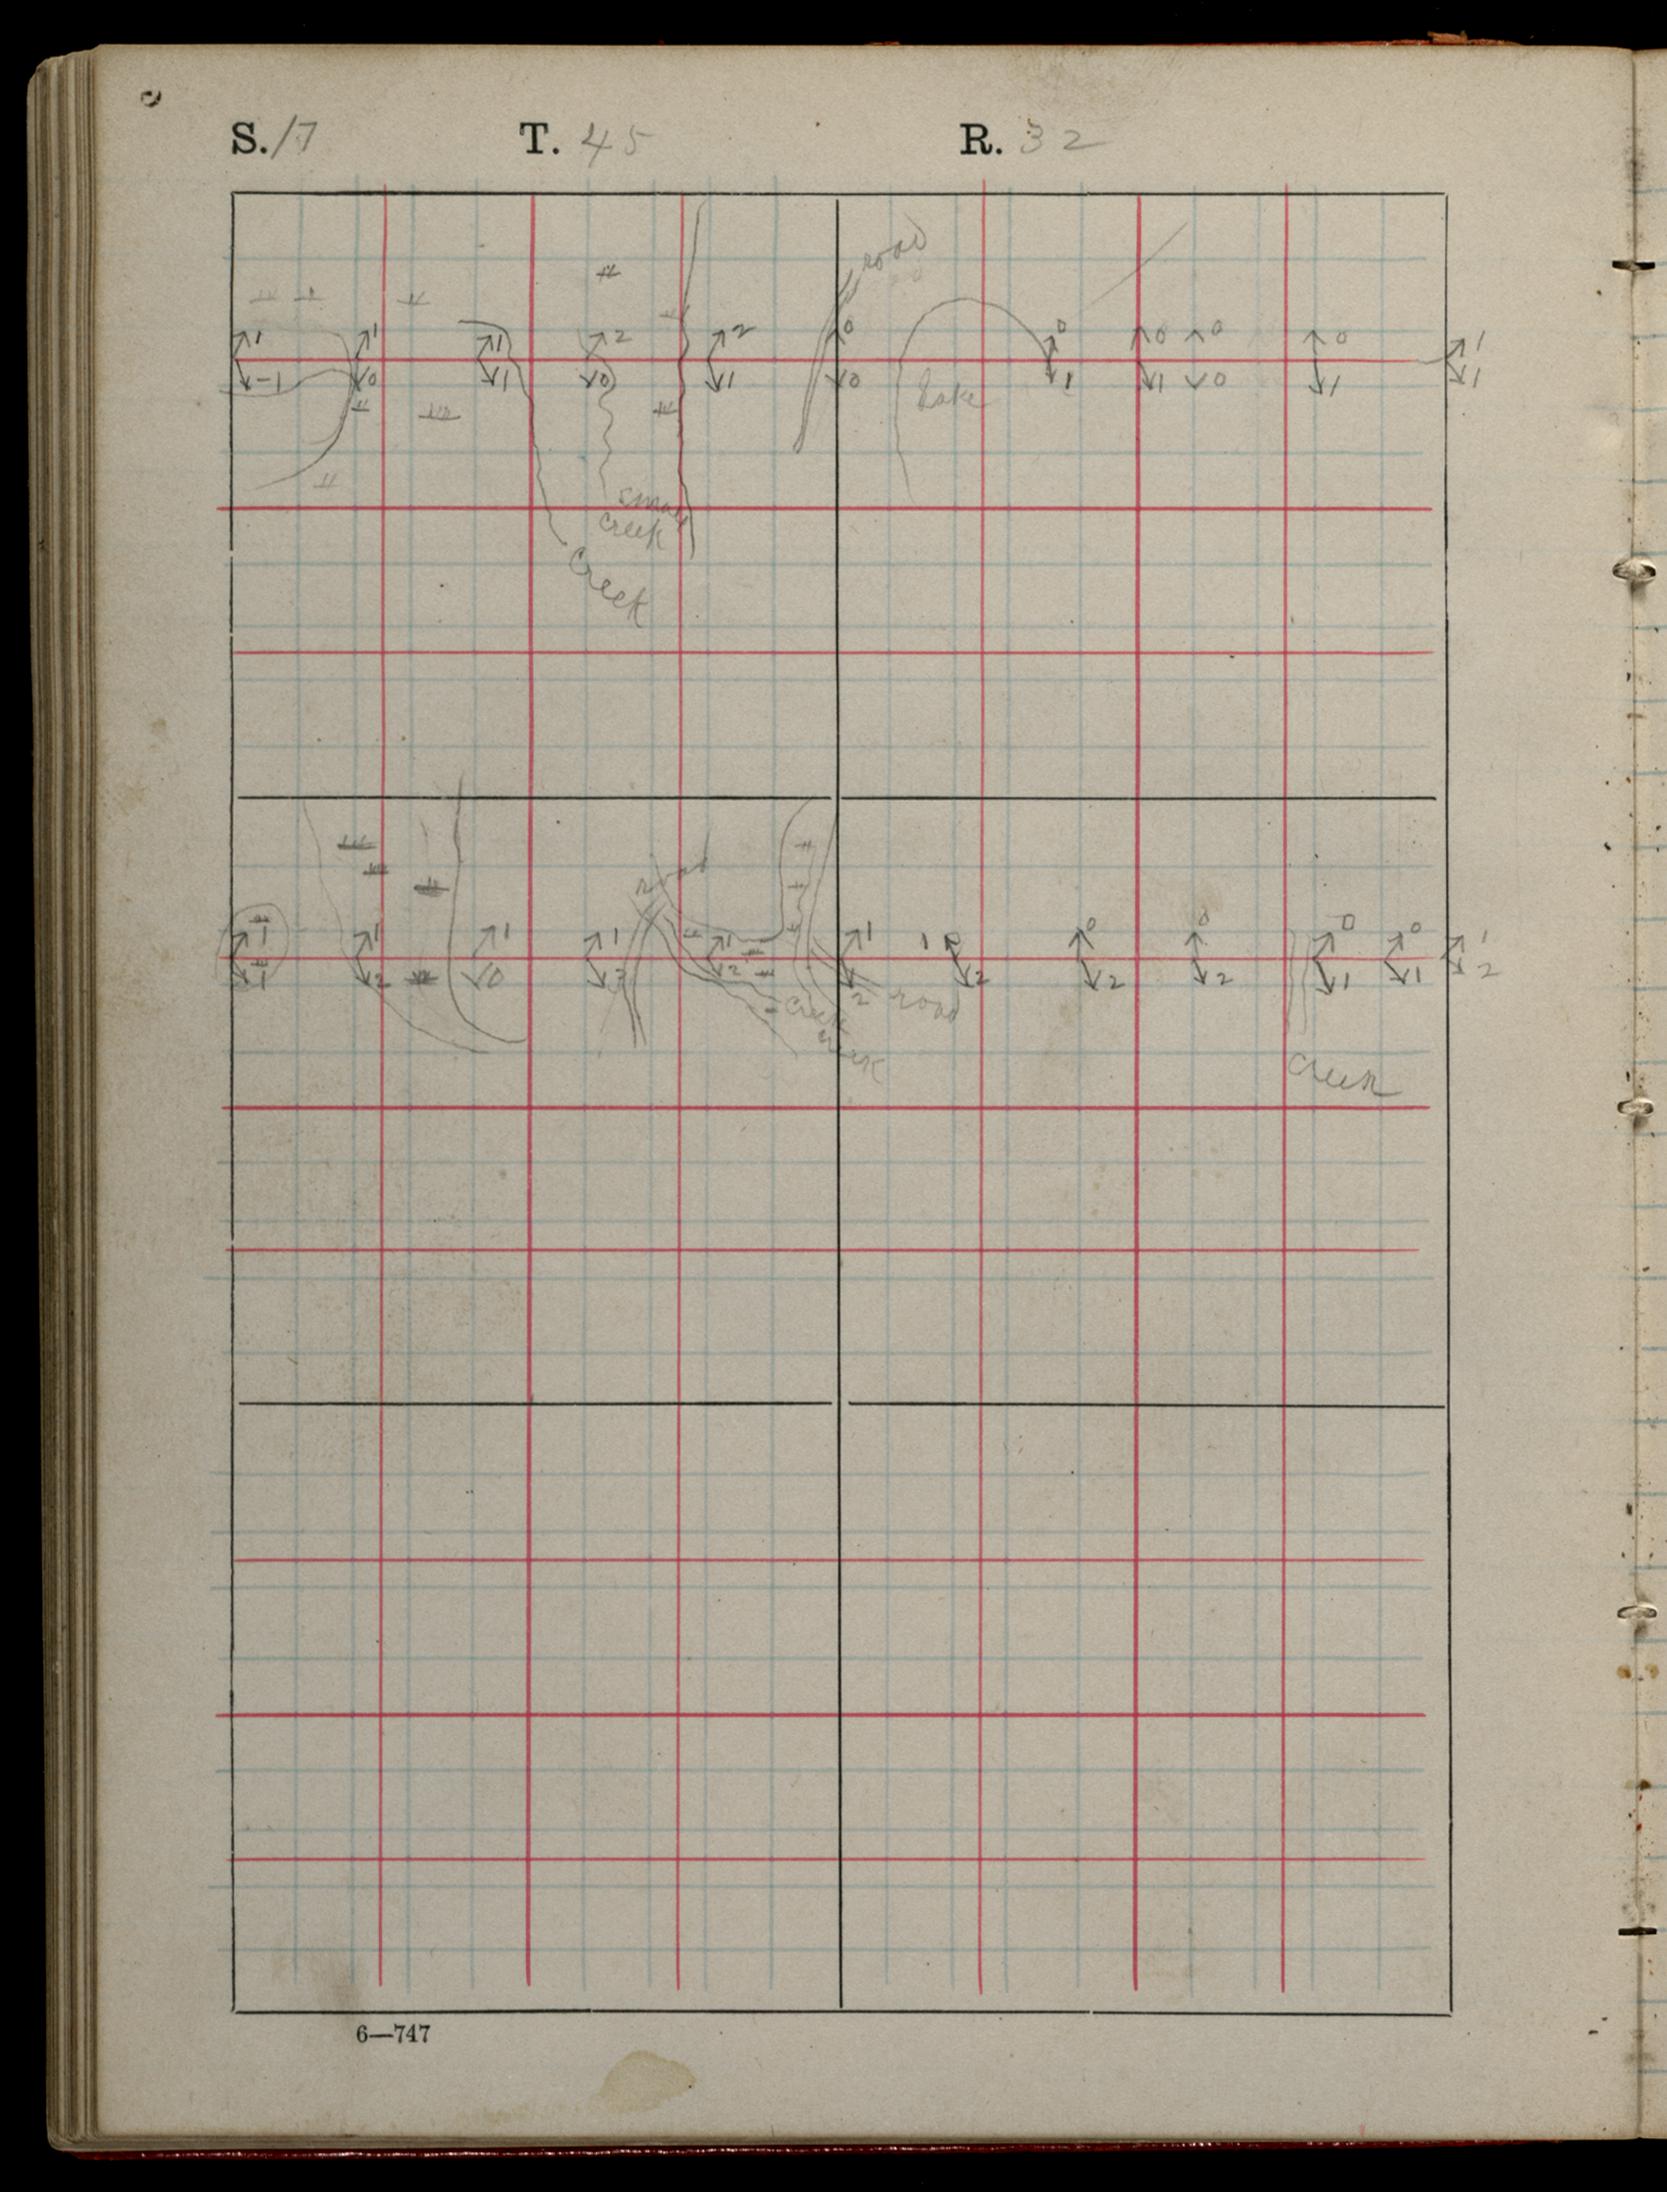 S. 17 T. 45 R. 32
road
1 1 1 2 2 0 0 0 0 0 1
-1 0 1 0 1 0 1 1 0 1 1
Lake
small
creek
Creek
road
1 1 1 1 1 1 1 0 0 0 0 1
1 2 0 2 2 2 2 2 1 1 2
creek road
creek
Creek
6—747